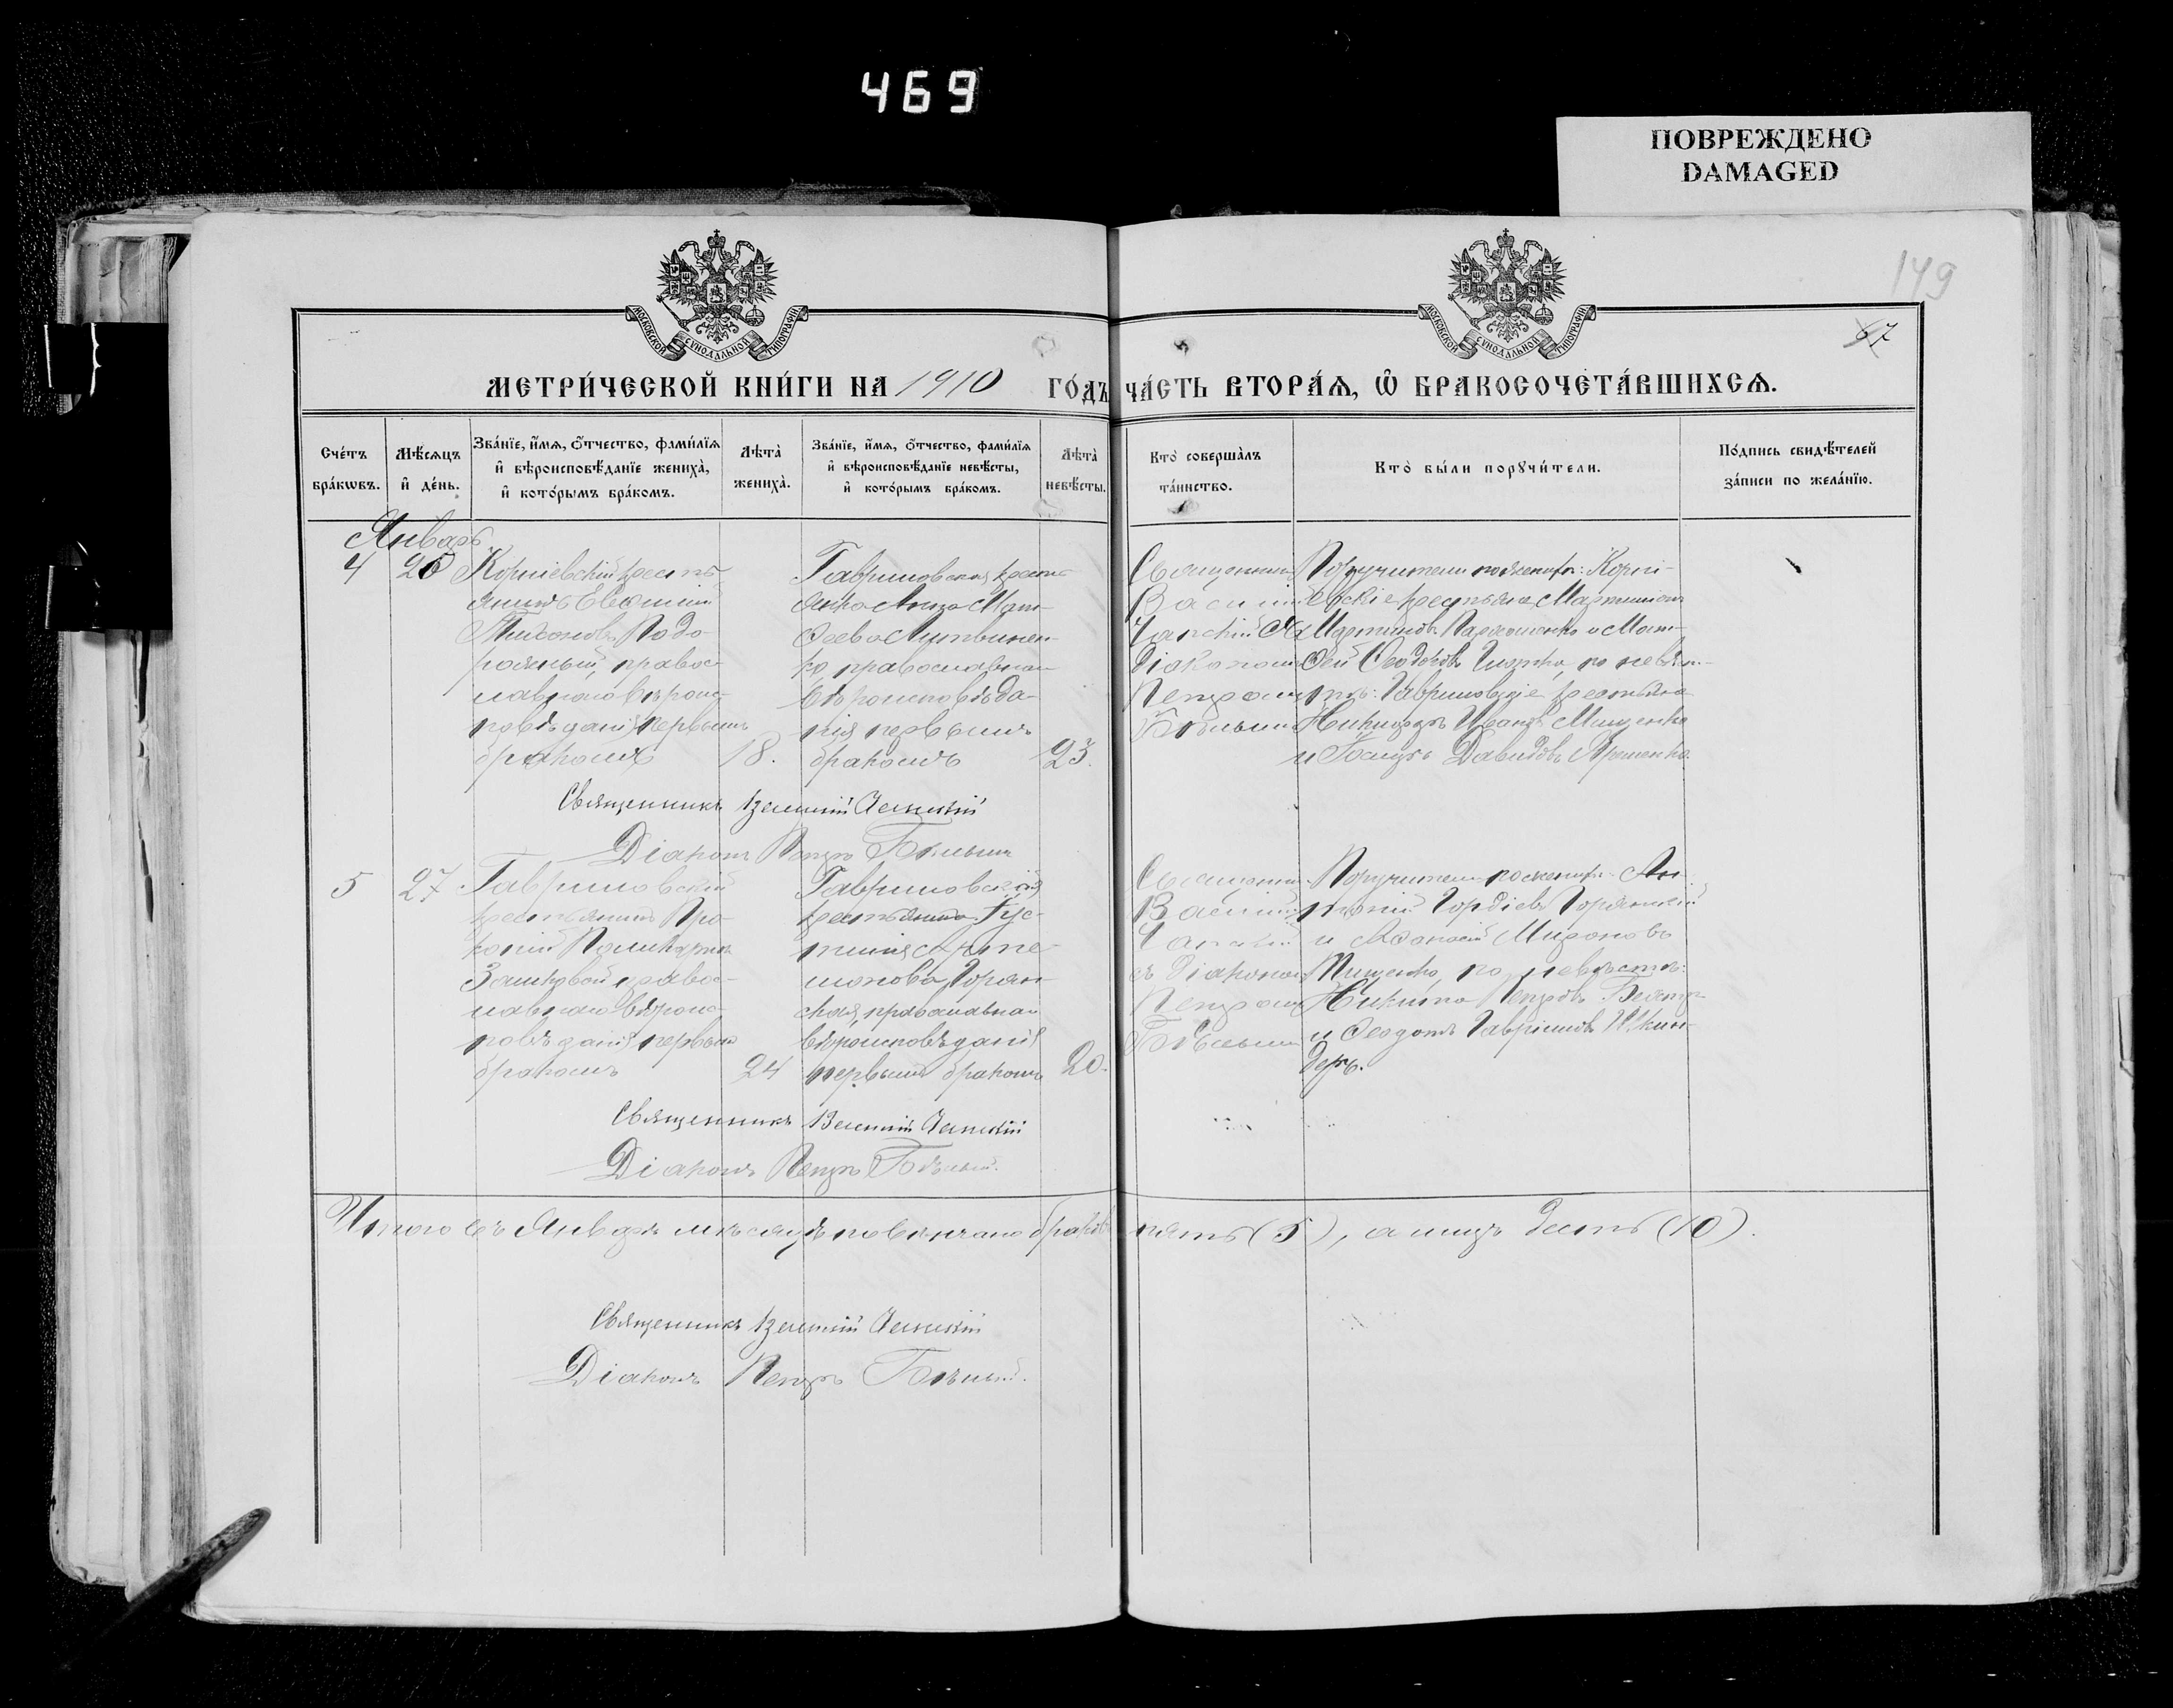 469
ПОВРЕЖДЕНО
DAMAGED
149
67
МОСКОВСКОЙ СѴНОДАЛЬНОЙ ТИПОГРАФІИ
МОСКОВСКОЙ СѴНОДАЛЬНОЙ ТИПОГРАФІИ
МЕТРИ́ЧЕСКОЙ КНИ́ГИ НА 1910 ГО́ДЪ ЧА́СТЬ ВТОРА́Ѧ, Ѡ҆ БРАКОСОЧЕТА́ВШИХСѦ.
Сче́тъ
бра́кѡвъ.
Мѣ́сѧцъ
и҆ де́нь.
Зва́нїе, и҆́мѧ, ѻ҆́тчество, фами́лїѧ
и҆ вѣроисповѣ́данїе жениха̀,
и҆ кото́рымъ бра́комъ.
Лѣта̀
жениха̀.
Зва́нїе, и҆́мѧ, ѻ҆́тчество, фами́лїѧ
и҆ вѣроисповѣ́данїе невѣ́сты,
и҆ кото́рымъ бра́комъ.
Лѣта̀
невѣ́сты.
Кто̀ соверша̀лъ
та́инство.
Кто̀ бы́ли порꙋчи́тели.
По́дпись свидѣ́телей
за́писи по жела́нїю.
Январь
4
Корніевскій кресть-
янинъ Евфимій
Подо-
рожный, правос-
лавнаго вѣроис-
повѣданія первымъ
бракомъ
18.
Гавриловская кресть-
янка Анна Мат-
ѳеева Литвинен-
ко, православнаго
вѣроисповѣда-
нія первымъ
бракомъ
23.
Священникъ
Василій
діакономъ
Петромъ
Бѣлымъ
Поручители по женихѣ: Корні-
евскіе крестьяне
Мартиновъ и Мат-
ѳей по невѣс-
тѣ: Гавриловскіе крестьяне
Никифоръ Ивановъ Мищенко
и Давидовъ
Священникъ Василій
Діаконъ Петръ Бѣлый
5
27
Гавриловскій
крестьянинъ Про-
копій Поликарповъ
правос-
лавнаго вѣроис-
повѣданія первымъ
бракомъ
24
Гавриловская
крестьянка Іус-
тинія Арте-
монова Горян-
ская, православнаго
вѣроисповѣданія
первымъ бракомъ
20.
Священникъ
Василій
съ діакономъ
Петромъ
Бѣлымъ
Поручители по женихѣ: Ан-
тоній Гордіевъ Горянскій
и Аѳанасій Мироновъ
Тищенко, по невѣстѣ:
Никита Петровъ
и Ѳеодотъ Гавріиловъ Шкин-
деръ.
Священникъ Василій
Діаконъ Петръ Бѣлый.
Итого въ Январѣ мѣсяцѣ повѣнчано браковъ пять (5), а лицъ десять (10).
Священникъ Василій
Діаконъ Петръ Бѣлый.